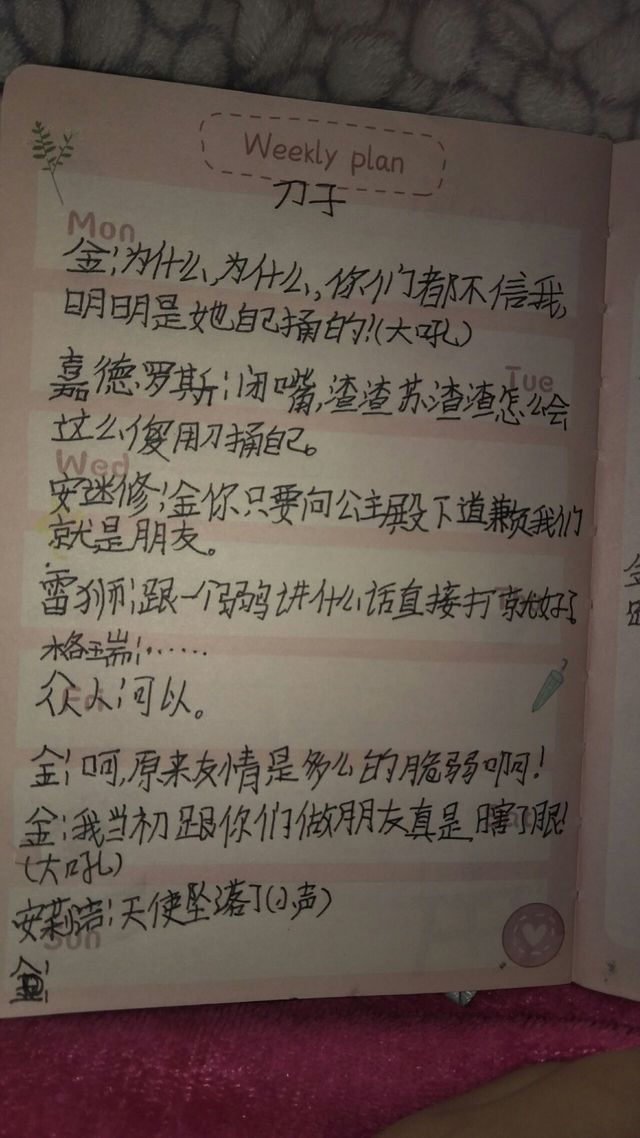 Weekly plan
刀子
Mon
金:为什么,为什么,你们都不信我,
明明是她自己捅的!(大吼)
Tue
嘉德罗斯:闭嘴,渣渣苏渣渣怎么会
这么傻用刀捅自己。
Wed
安迷修:金你只要向公主殿下道歉我们
就是朋友。
雷狮:跟一个弱鸡讲什么话直接打就好了
格瑞:……
众人:可以。
金:呵,原来友情是多么的脆弱啊!
金:我当初跟你们做朋友真是瞎了眼!
(大吼)
安莉洁:天使坠落了(小声)
Sun
金: